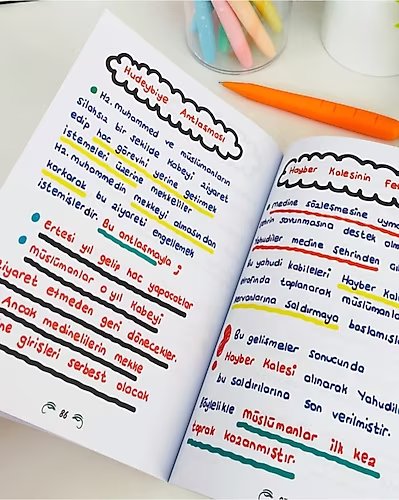 Hudeybiye Antlaşması
Hz. muhammed ve müslümanların
silahsız bir şekilde Kabeyi ziyaret
edip hac görevini yerine getirmek
istemeleri üzerine mekkeliler
Hz. muhammedin mekkeyi almasından
korkarak bu ziyareti engellemek
istemişlerdir. Bu antlaşmayla ;
Ertesi yıl gelip hac yapacaklar
müslümanlar o yıl Kabeyi
ziyaret etmeden geri dönecekler.
Ancak medinelilerin mekke
ne girişleri serbest olacak
86
Hayber Kalesinin Fe
medine sözleşmesine uyma
şehrin savunmasına destek olm
Yahudiler medine Şehrinden
Bu yahudi kabileleri Hayber Kal
etrafında toplanarak müslümanla
kervanlarına saldırmaya başlamışl
Bu gelişmeler sonucunda
Hayber Kalesi alınarak Yahudil
bu saldırılarına son verilmiştir.
Böylelikle müslümanlar ilk kez
toprak kazanmıştır.